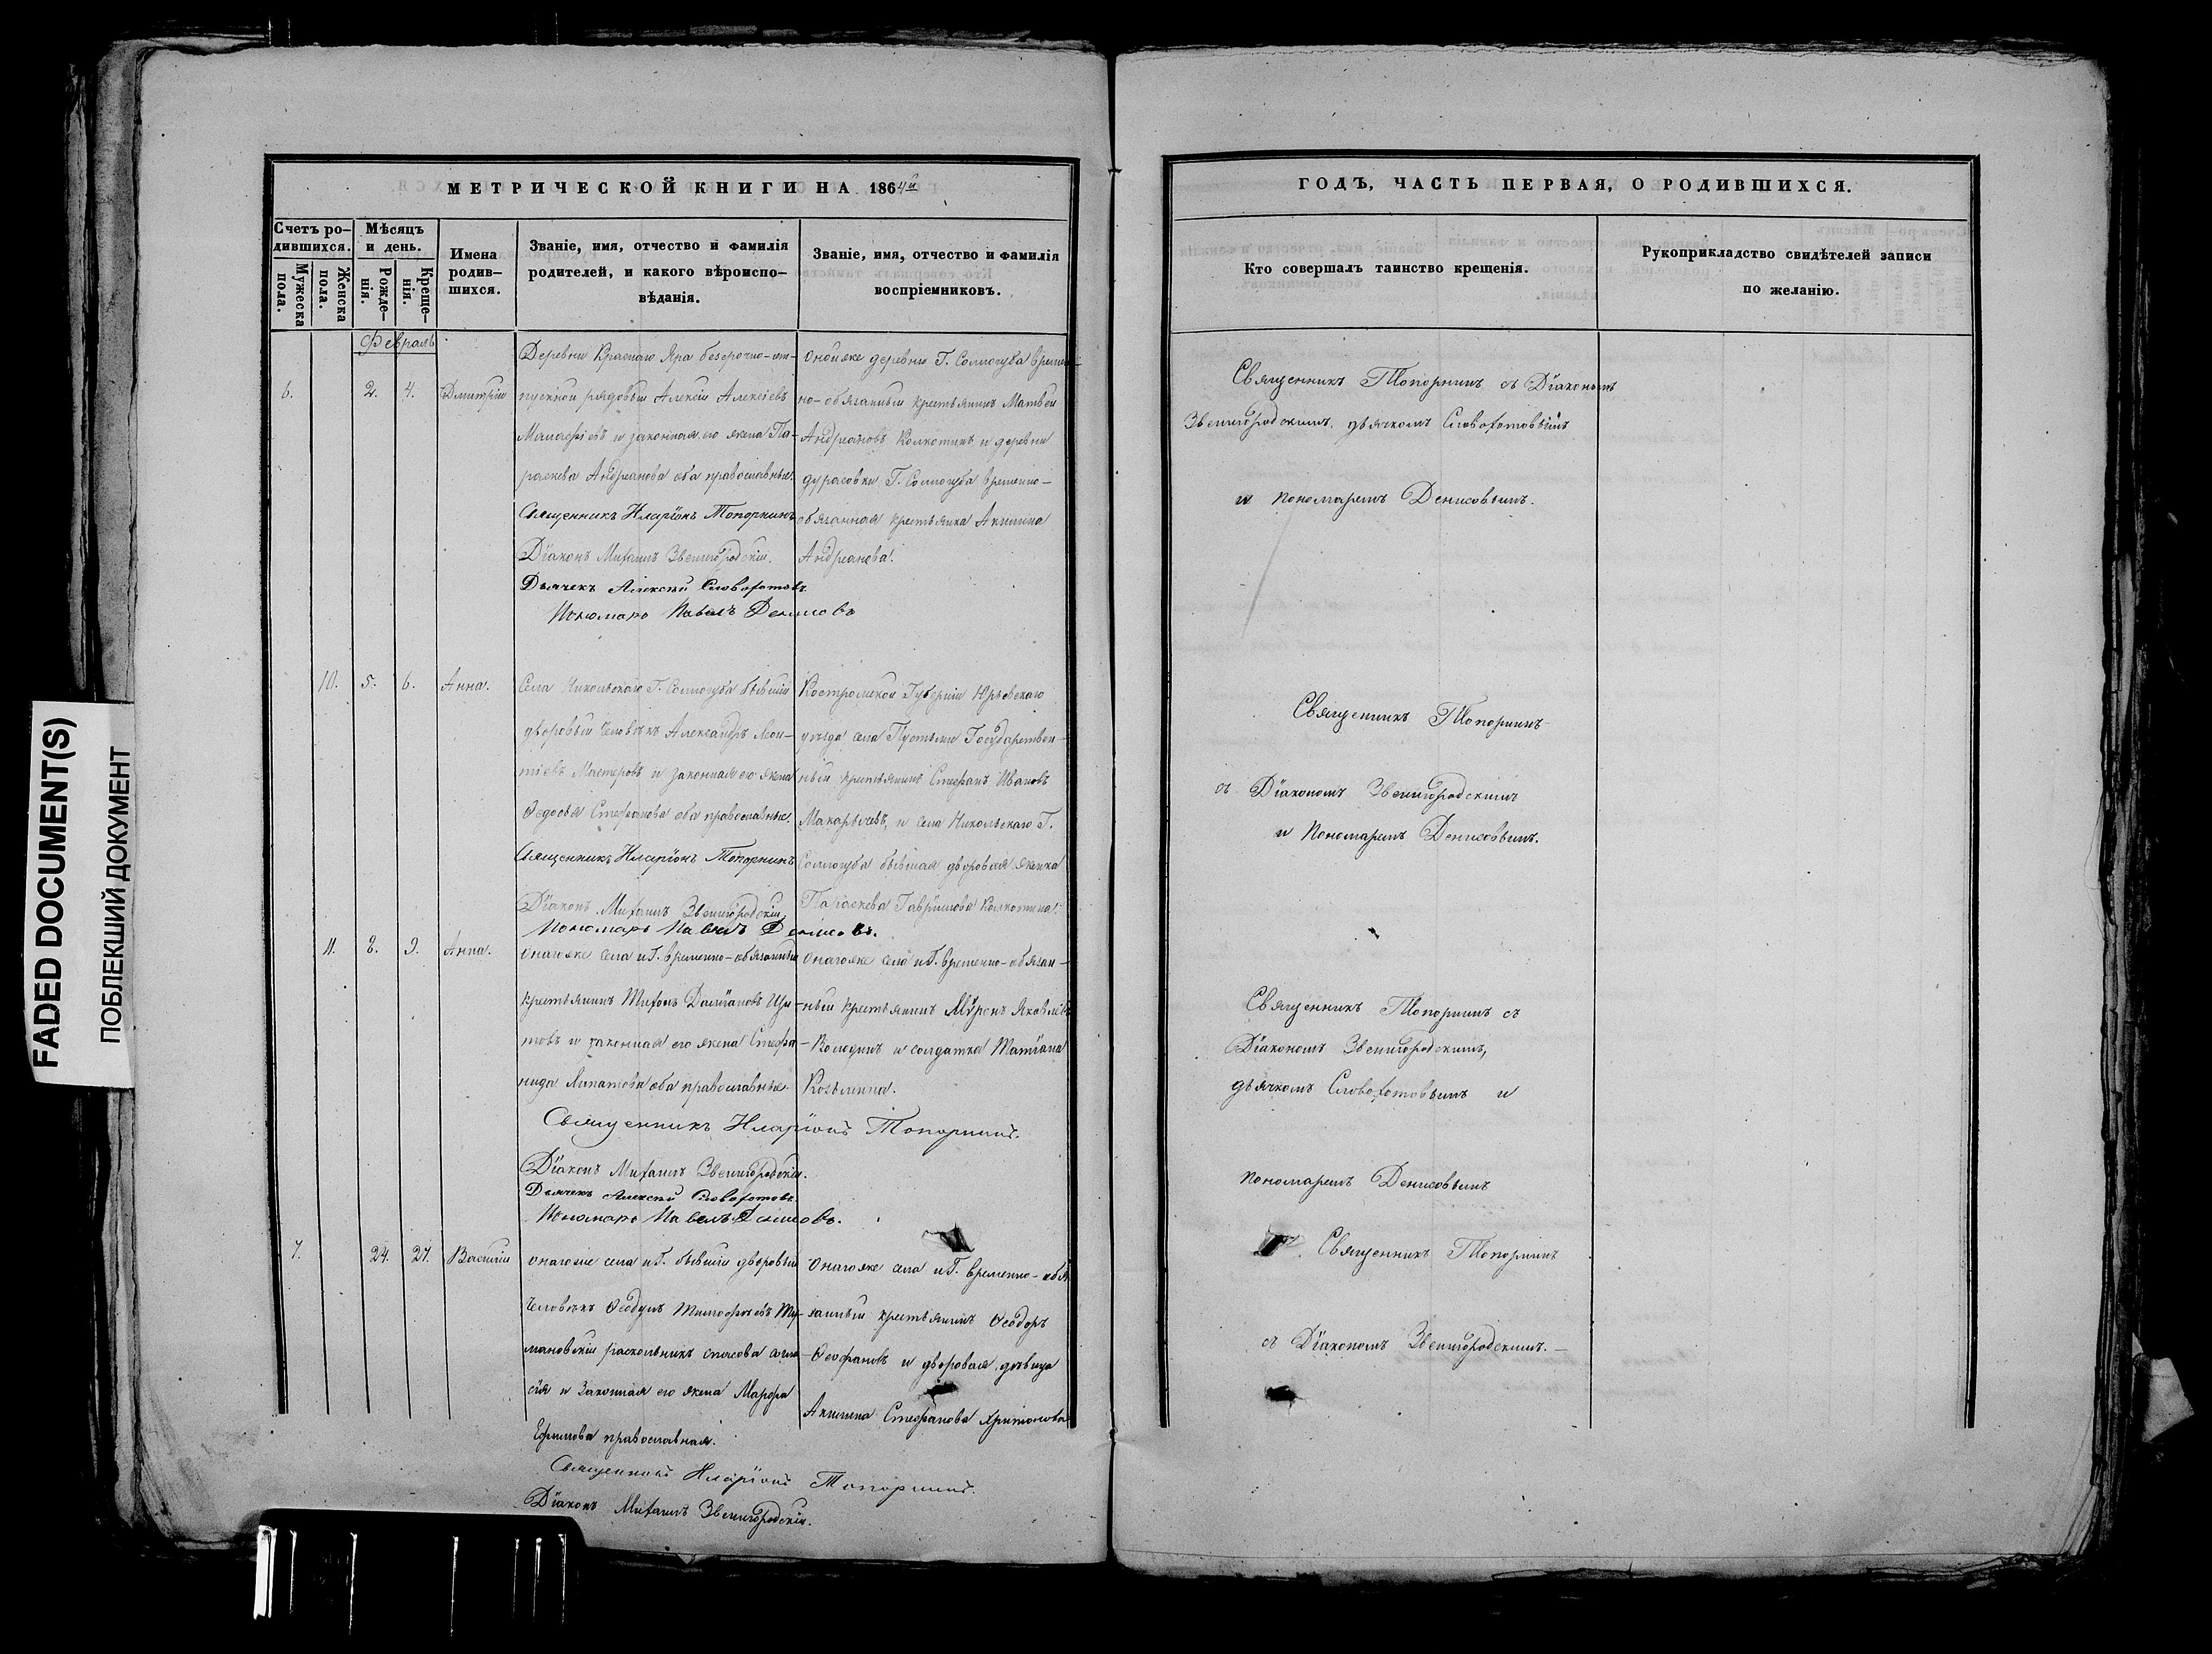 МЕТРИЧЕСКОЙ КНИГИ НА 1864й
ГОДЪ, ЧАСТЬ ПЕРВАЯ, О РОДИВШИХСЯ.
Счетъ ро-
дившихся.
Мужеска
пола.
Женска
пола.
Мѣсяцъ
и день.
Рожде-
нія.
Креще-
нія.
Имена
родив-
шихся.
Званіе, имя, отчество и фамилія
родителей, и какого вѣроиспо-
вѣданія.
Званіе, имя, отчество и фамилія
воспріемниковъ.
Кто совершалъ таинство крещенія.
Рукоприкладство свидѣтелей записи
по желанію.
Февраль
6.
2.
4.
Дмитрій
Деревни Краснаго Яра безсрочно-от-
пускной рядовый Алексій Алексіевъ
и законная его жена Па-
раскева Андреанова оба православные.
Священникъ Иларіонъ Топорнинъ
Діаконъ Михаилъ Звенигородскій.
Дьячекъ Алексѣй Словохотовъ
Пономарь Павелъ Денисовъ
Онойже деревни Г. Соллогуба времен-
но-обязанный крестьянинъ Матвей
Андреановъ Колкотинъ и деревни
дурасовки Г. Соллогуба временно-
обязанная крестьянка Акилина
Андреанова.
Священникъ Топорнинъ съ Діакономъ
Звенигородскимъ, дьячкомъ Словохотовымъ
и пономаремъ Денисовымъ.
10.
5.
6.
Анна.
Села Никольскаго Г. Соллогуба бывшій
дворовый человѣкъ Александръ Леон-
тіевъ Мастеровъ и законная его жена
Ѳедосья Стефанова оба православные.
Священникъ Иларіонъ Топорнинъ
Діаконъ Михаилъ Звенигородскій
Пономарь Павелъ Денисовъ.
Костромской Губерніи Юрьевскаго
уѣзда села Пустыни Государствен-
ный крестьянинъ Стефанъ Ивановъ
Макарычевъ, и села Никольскаго Г.
Соллогуба бывшая дворовая женка
Параскева Гаврилова Колкотина.
Священникъ Топорнинъ
съ Діакономъ Звенигородскимъ
и Пономаремъ Денисовымъ.
11.
8.
9.
Анна.
Онагоже села и Г. временно-обязанный
крестьянинъ Тихонъ Даміановъ
и законная его жена Стефа-
нида Липатова оба православные.
Священникъ Иларіонъ Топорнинъ.
Діаконъ Михаилъ Звенигородскій.
Дьячекъ Алексѣй Словохотовъ.
Пономарь Павелъ Денисовъ.
Онагоже села и Г. временно-обязан-
ный крестьянинъ Мѵронъ Яковлевъ
Колодинъ и солдатка Татіана
Козьмина.
Священникъ Топорнинъ съ
Діакономъ Звенигородскимъ,
дьячкомъ Словохотовымъ и
пономаремъ Денисовымъ
7.
24.
27.
Василій
Онагоже села и Г. бывшій дворовый
человѣкъ Ѳеодулъ Тимофѣевъ Ту-
мановскій раскольникъ спасова согла-
сія и законная его жена Марфа
Ефимова православная.
Священникъ Иларіонъ Топорнинъ.
Діаконъ Михаилъ Звенигородскій.
Онагоже села и Г. временно-обя-
занный крестьянинъ Ѳеодоръ
Ѳеофановъ и дворовая дѣвица
Акилина Стефанова Аритонова
Священникъ Топорнинъ
съ Діакономъ Звенигородскимъ.
FADED DOCUMENT(S)
ПОБЛЕКШИЙ ДОКУМЕНТ